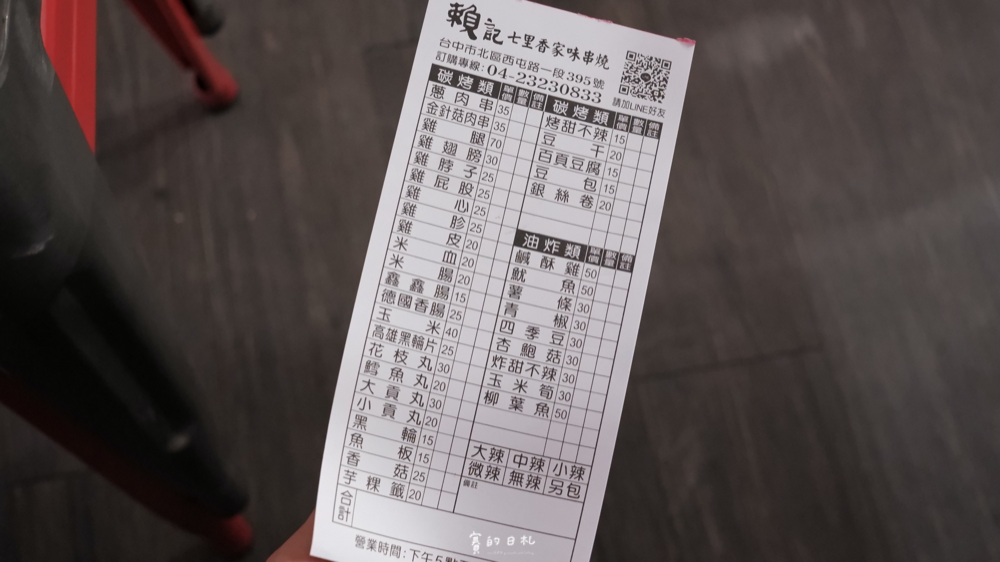 賴記七里香家味串燒
台中市北區西屯路一段395號
訂購專線:04-23230833
請加LINE好友
碳烤類 單價 數量 備註
蔥肉串 35
金針菇肉串 35
雞腿 70
雞翅膀 30
雞脖子 25
雞屁股 25
雞心 25
雞胗 25
雞皮 20
米血 20
米腸 20
鑫鑫腸 15
德國香腸 25
玉米 40
高雄黑輪片 25
花枝丸 30
鱈魚丸 20
大貢丸 30
小貢丸 20
黑輪 15
魚板 15
香菇 25
芋粿籤 20
合計
碳烤類 單價 數量 備註
烤甜不辣 15
豆干 20
百頁豆腐 15
豆包 15
銀絲卷 20
油炸類 單價 數量 備註
鹹酥雞 50
魷魚 50
薯條 30
青椒 30
四季豆 30
杏鮑菇 30
炸甜不辣 30
玉米筍 30
柳葉魚 50
大辣 中辣 小辣
微辣 無辣 另包
備註
營業時間:下午5點
賓的日札